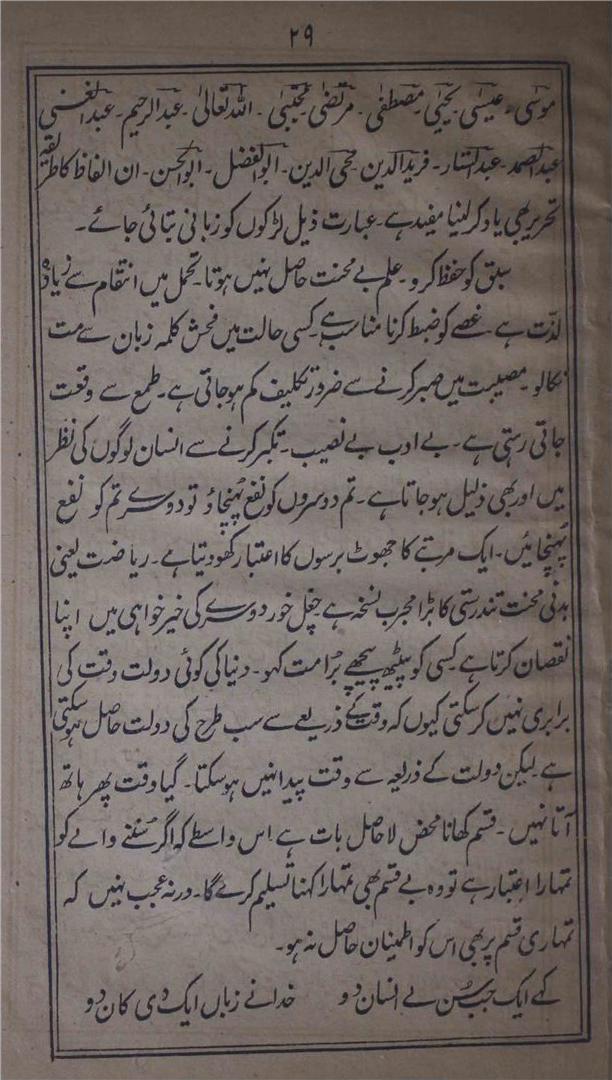 ۲۹
موسیٰ۔ عیسیٰ۔ یحییٰ۔ مصطفیٰ۔ مرتضیٰ۔ مجتبیٰ۔ اللہ تعالیٰ۔ عبدالرحیم۔ عبدالغنی
عبدالصمد۔ عبدالستار۔ فریدالدین۔ محی الدین۔ ابوالفضل۔ ابوالحسن۔ ان الفاظ کا طریقہ
تحریر بھی یاد کر لینا مفید ہے۔ عبارت ذیل لڑکوں کو زبانی بتائی جائے۔
سبق کو حفظ کرو۔ علم بے محنت حاصل نہیں ہوتا۔ تحمل میں انتقام سے زیادہ
لذّت ہے۔ غصے کو ضبط کرنا مناسب ہے۔ کسی حالت میں فحش کلمہ زبان سے مت
نکالو۔ مصیبت میں صبر کرنے سے ضرور تکلیف کم ہو جاتی ہے۔ طمع سے وقعت
جاتی رہتی ہے۔ بے ادب بے نصیب۔ تکبر کرنے سے انسان لوگوں کی نظر
میں اور بھی ذلیل ہو جاتا ہے۔ تم دوسروں کو نفع پہنچاؤ تو دوسرے تم کو نفع
پہنچائیں۔ ایک مرتبے کا جھوٹ برسوں کا اعتبار کھو دیتا ہے۔ ریاضت یعنی
بدنی محنت تندرستی کا بڑا مجرب نسخہ ہے چغل خور دوسرے کی خیر خواہی میں اپنا
نقصان کرتا ہے کسی کو پیٹھ پیچھے بُرا مت کہو۔ دنیا کی کوئی دولت وقت کی
برابری نہیں کر سکتی کیوں کہ وقت کے ذریعے سے سب طرح کی دولت حاصل ہو سکتی
ہے لیکن دولت کے ذریعہ سے وقت پیدا نہیں ہو سکتا۔ گیا وقت پھر ہاتھ
آتا نہیں۔ قسم کھانا محض لا حاصل بات ہے اس واسطے کہ اگر سننے والے کو
تمہارا اعتبار ہے تو وہ بے قسم بھی تمہارا کہنا تسلیم کرے گا۔ ورنہ عجب نہیں کہ
تمہاری قسم پر بھی اس کو اطمینان حاصل نہ ہو۔
کہے ایک جب سُن لے انسان دو خدا نے زباں ایک دی کان دو